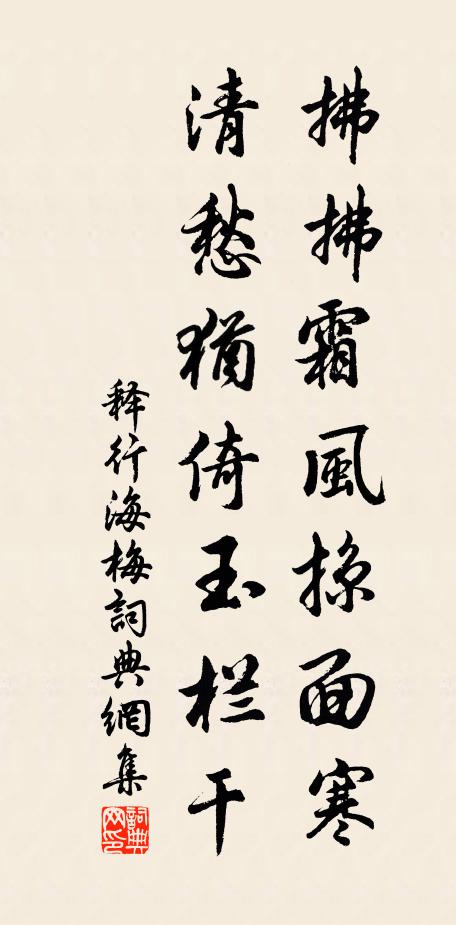 拂拂霜風掠面寒
清愁猶倚玉栏干
释行海梅詞典網集
詞典网印